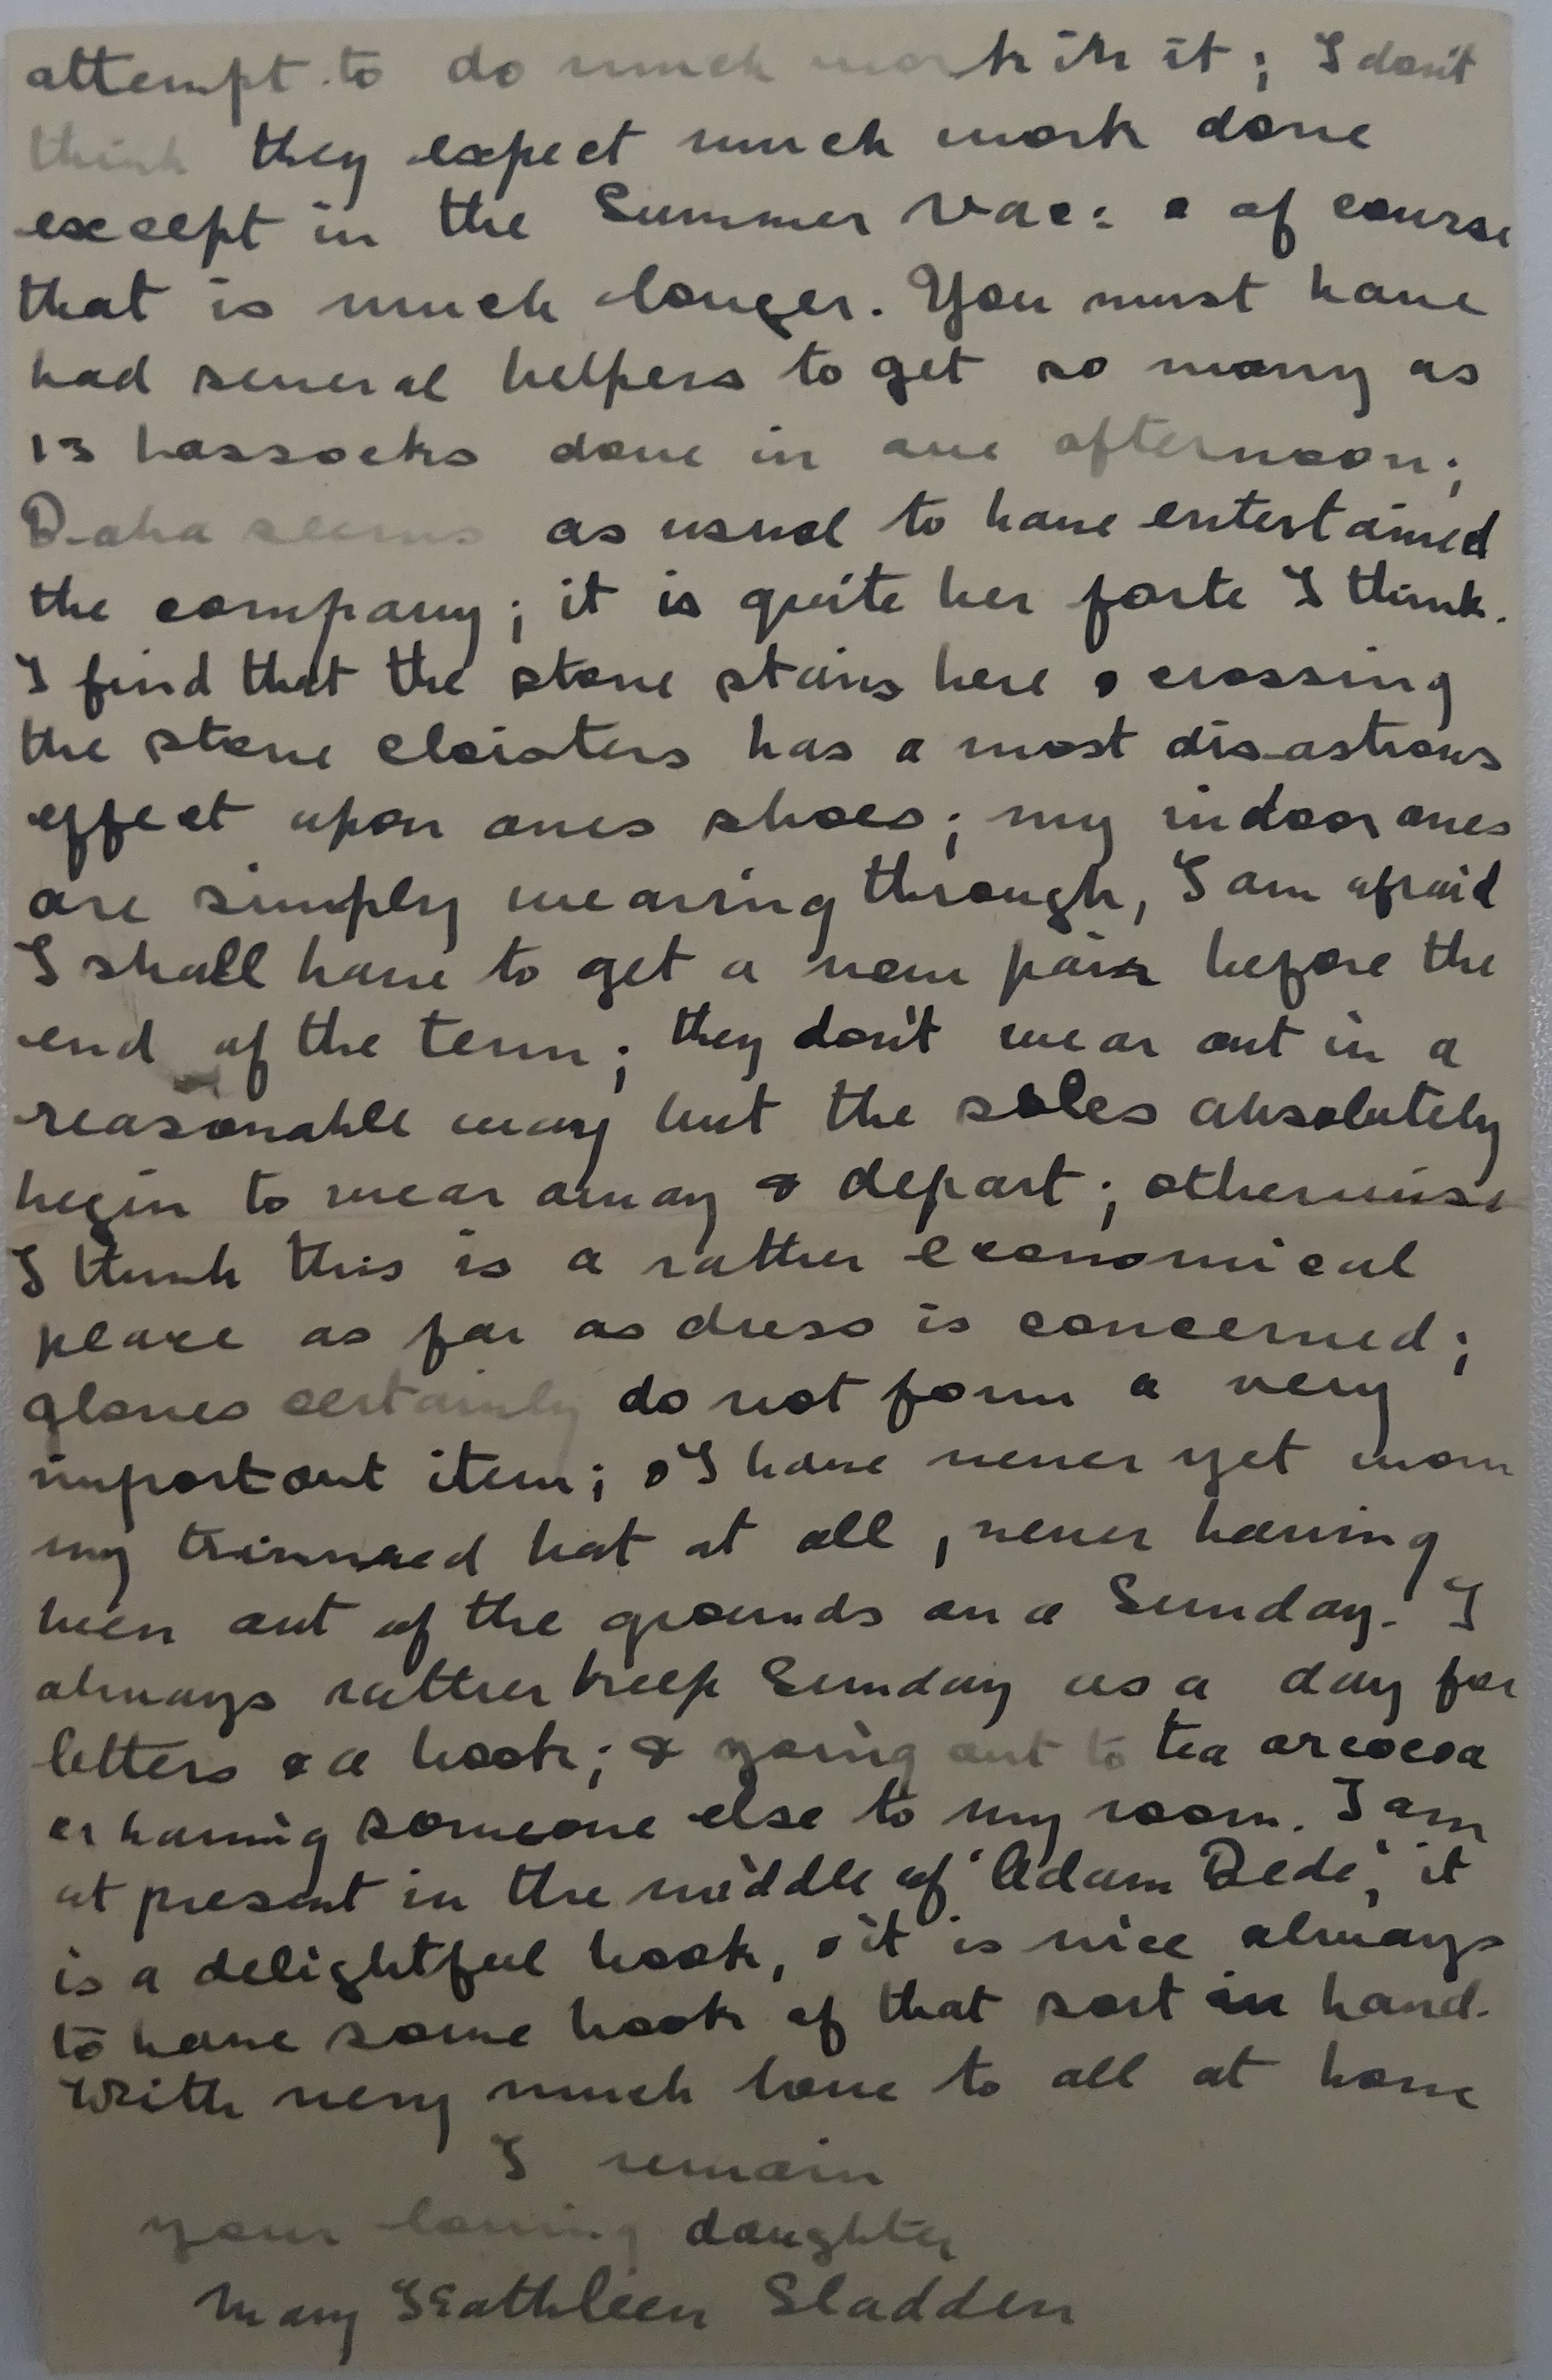 attempt to do much work in it; I don't
think they expect much work done
except in the Summer Vac: & of course
that is much longer. You must have
had several helpers to get so many as
13 hassocks done in one afternoon;
Baba seems as usual to have entertained
the company; it is quite her forte I think.
I find that the stone stairs here & crossing
the stone cloisters has a most disastrous
effect upon ones shoes; my indoor ones
are simply wearing through, I am afraid
I shall have to get a new pair before the
end of the term; they don't wear out in a
reasonable way but the soles absolutely
begin to wear away & depart; otherwise
I think this is a rather economical
place as far as dress is concerned;
gloves certainly do not form a very
important item; & I have never yet worn
my trimmed hat at all, never having
been out of the grounds on a Sunday. I
always rather keep Sunday as a day for
letters & a book; & going out to tea or cocoa
or having someone else to my room. I am
at present in the middle of 'Adam Bede', it
is a delightful book, & it is nice always
to have some book of that sort in hand.
With very much love to all at home
I remain
your loving daughter
Mary Kathleen Sladden